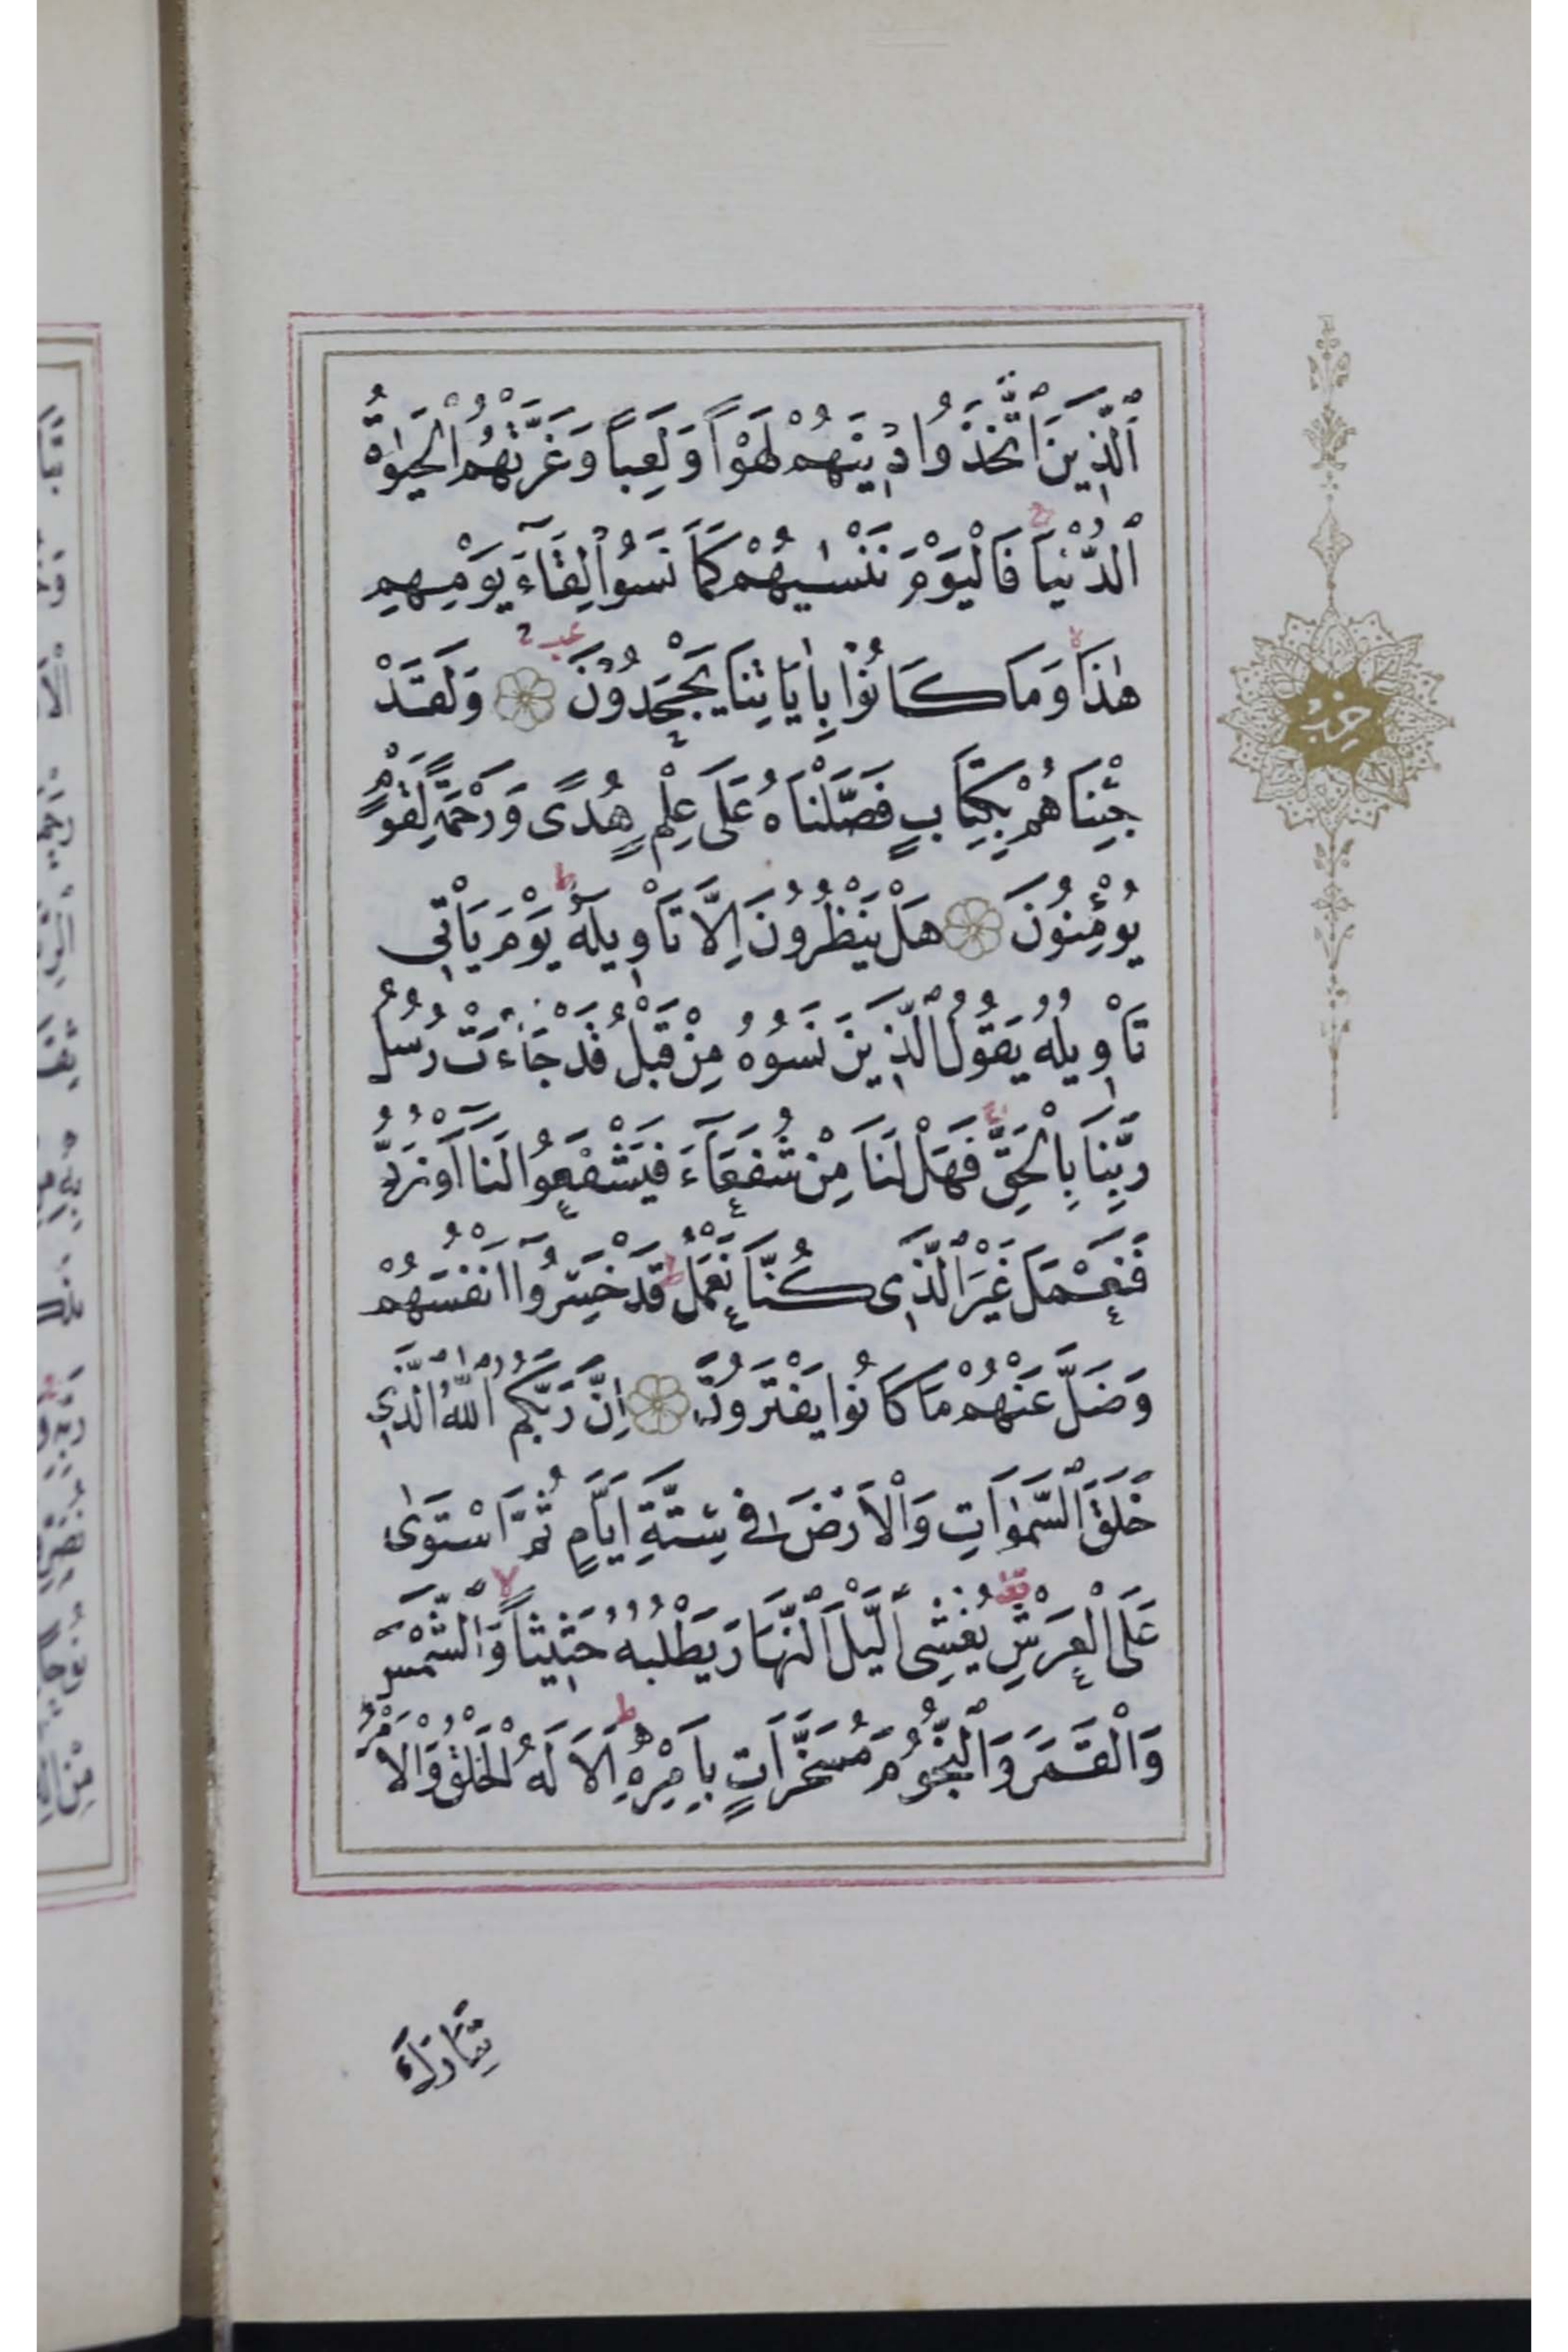 اَلَّذِينَ اتَّخَذُوا دِينَهُمْ لَهْوًا وَلَعِبًا وَغَرَّتْهُمُ الْحَيٰوةُ
الدُّنْيَا فَالْيَوْمَ نَنْسٰيهُمْ كَمَا نَسُوا لِقَآءَ يَوْمِهِمْ
هٰذَا وَمَا كَانُوْا بِاٰيَاتِنَا يَجْحَدُوْنَ وَلَقَدْ
جِئْنَاهُمْ بِكِتَابٍ فَصَّلْنَاهُ عَلَى عِلْمٍ هُدًى وَرَحْمَةً لِقَوْمٍ
يُؤْمِنُونَ هَلْ يَنْظُرُونَ اِلَّا تَاْوِيلَهُ يَوْمَ يَاْتِي
تَاْوِيلُهُ يَقُولُ الَّذِينَ نَسُوهُ مِنْ قَبْلُ قَدْ جَآءَتْ رُسُلُ
رَبِّنَا بِالْحَقِّ فَهَلْ لَنَا مِنْ شُفَعَآءَ فَيَشْفَعُوا لَنَا اَوْ نُرَدُّ
فَنَعْمَلَ غَيْرَ الَّذِى كُنَّا نَعْمَلُ قَدْ خَسِرُوا اَنْفُسَهُمْ
وَضَلَّ عَنْهُمْ مَا كَانُوا يَفْتَرُونَ اِنَّ رَبَّكُمُ اللّٰهُ الَّذِي
خَلَقَ السَّمٰوَاتِ وَالْاَرْضَ فِي سِتَّةِ اَيَّامٍ ثُمَّ اسْتَوٰى
عَلَى الْعَرْشِ يُغْشِى الَّيْلَ النَّهَارَ يَطْلُبُهُ حَثِيثًا وَالشَّمْسَ
وَالْقَمَرَ وَالنُّجُومَ مُسَخَّرَاتٍ بِاَمْرِهِ اَلَا لَهُ الْخَلْقُ وَالْاَمْرُ
حزب